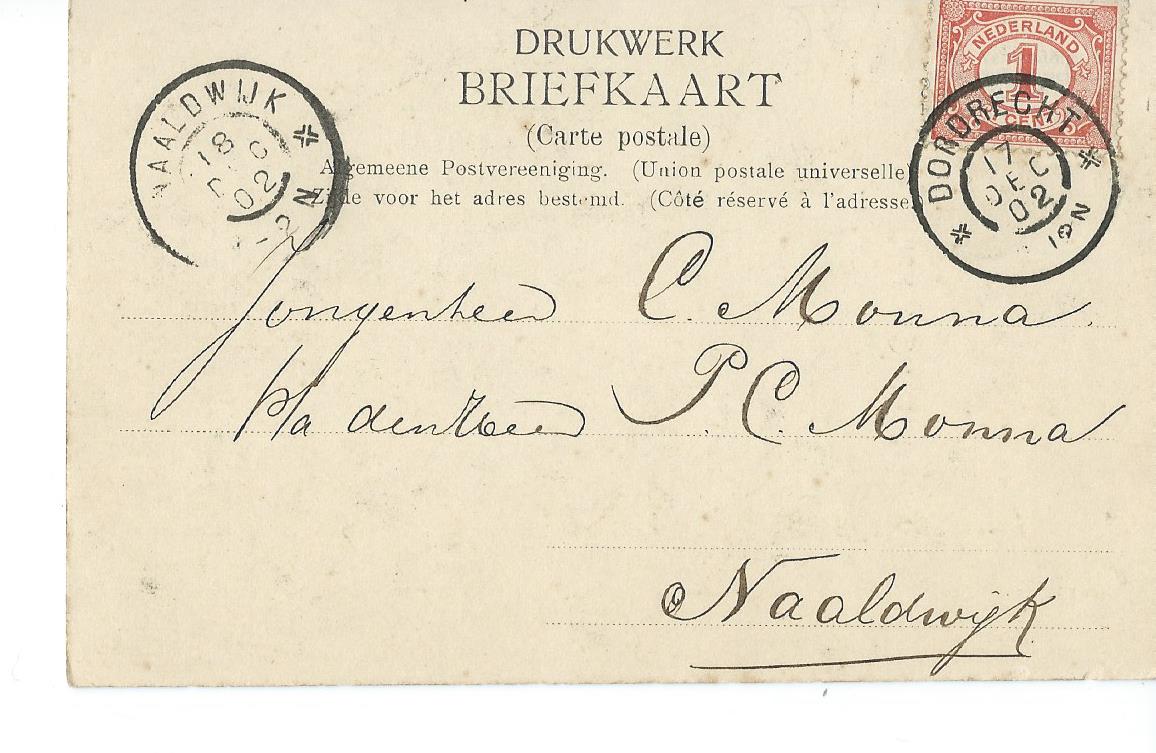 DRUKWERK
BRIEFKAART
(Carte postale)
Algemeene Postvereeniging. (Union postale universelle)
Zijde voor het adres bestemd. (Côté réservé à l'adresse)
NEDERLAND
1
CENT
NAALDWIJK
18
DEC
02
-2N
DORDRECHT
17
DEC
02
Jongenheer C. Monna.
P/a den Heer P. C. Monna
Naaldwijk